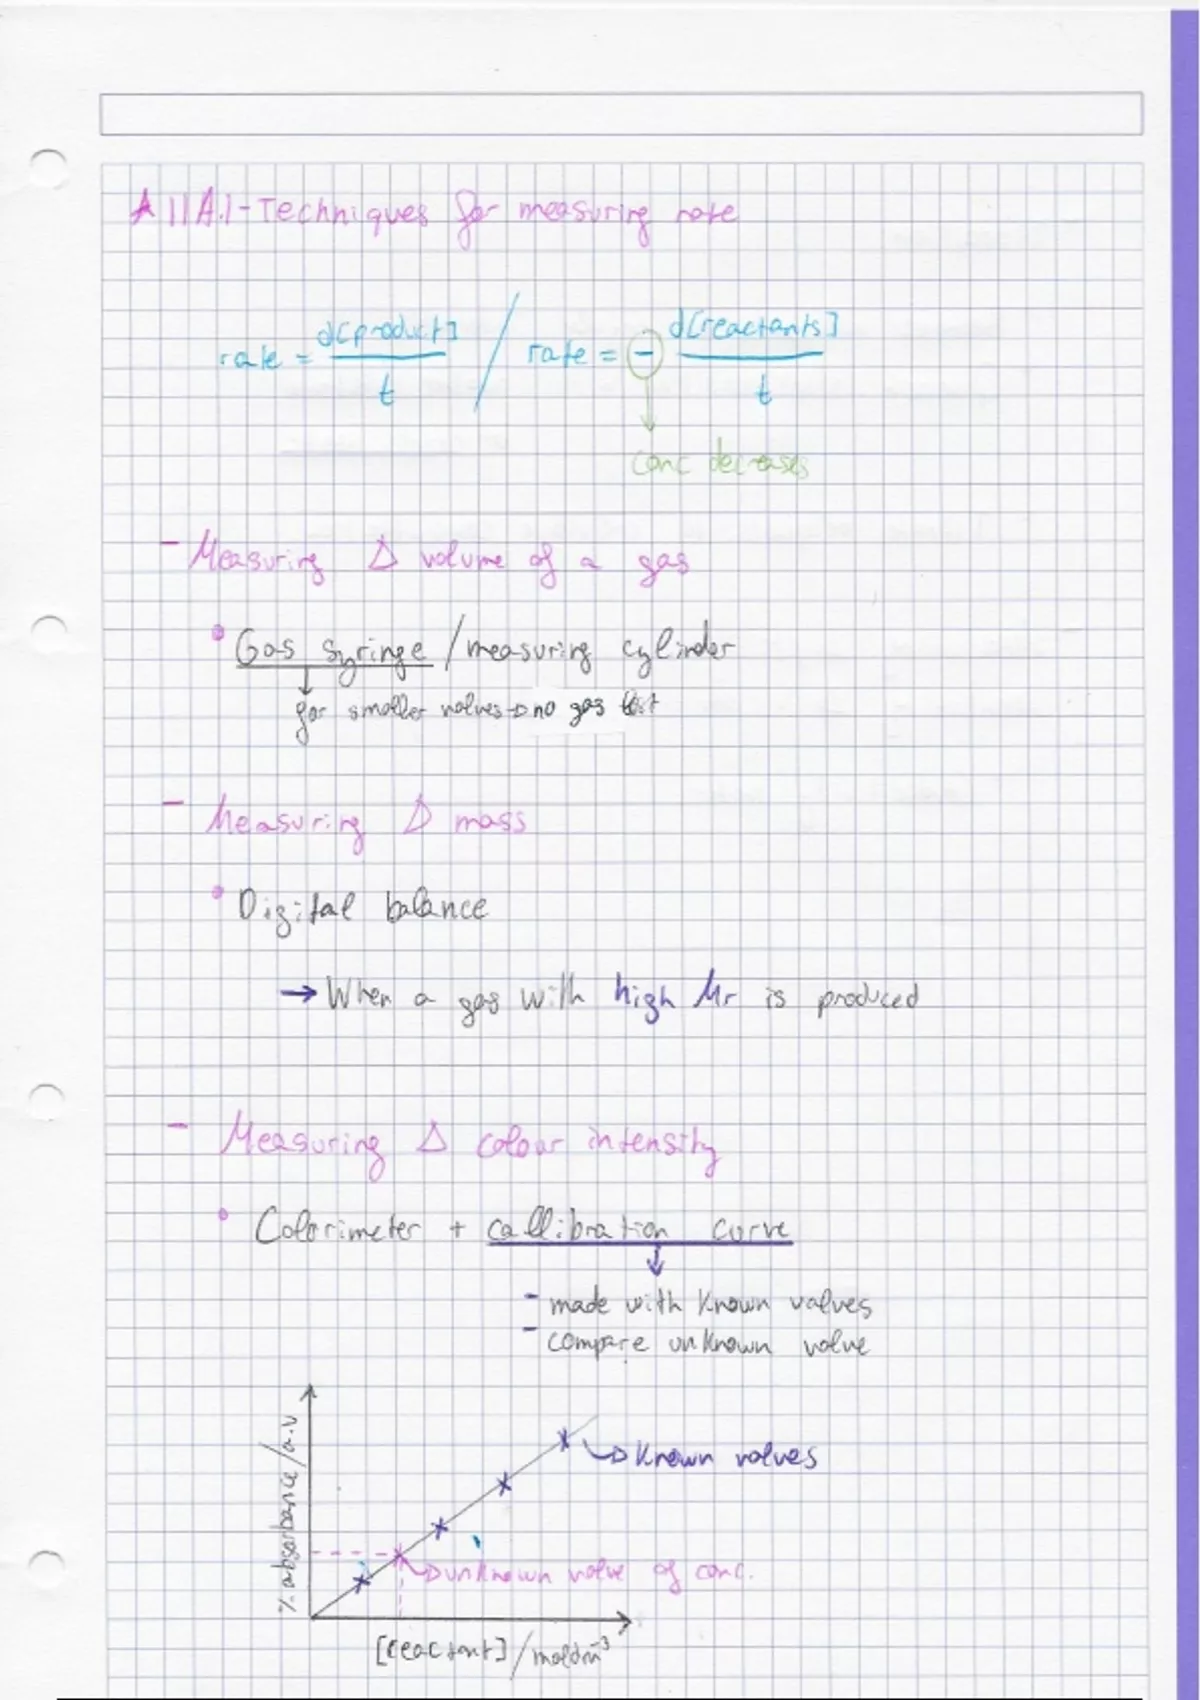 ★ 11A.1 - Techniques for measuring rate
rate = d[product] / t / rate = - d[reactants] / t
conc decreases
- Measuring Δ volume of a gas
• Gas syringe / measuring cylinder
for smaller values → no gas lost
- Measuring Δ mass
• Digital balance
→ When a gas with high Mr is produced
- Measuring Δ colour intensity
• Colorimeter + callibration curve
- made with known values
- compare unknown value
% absorbance / a.u
→ known values
→ unknown value of conc.
[reactant] / moldm⁻³